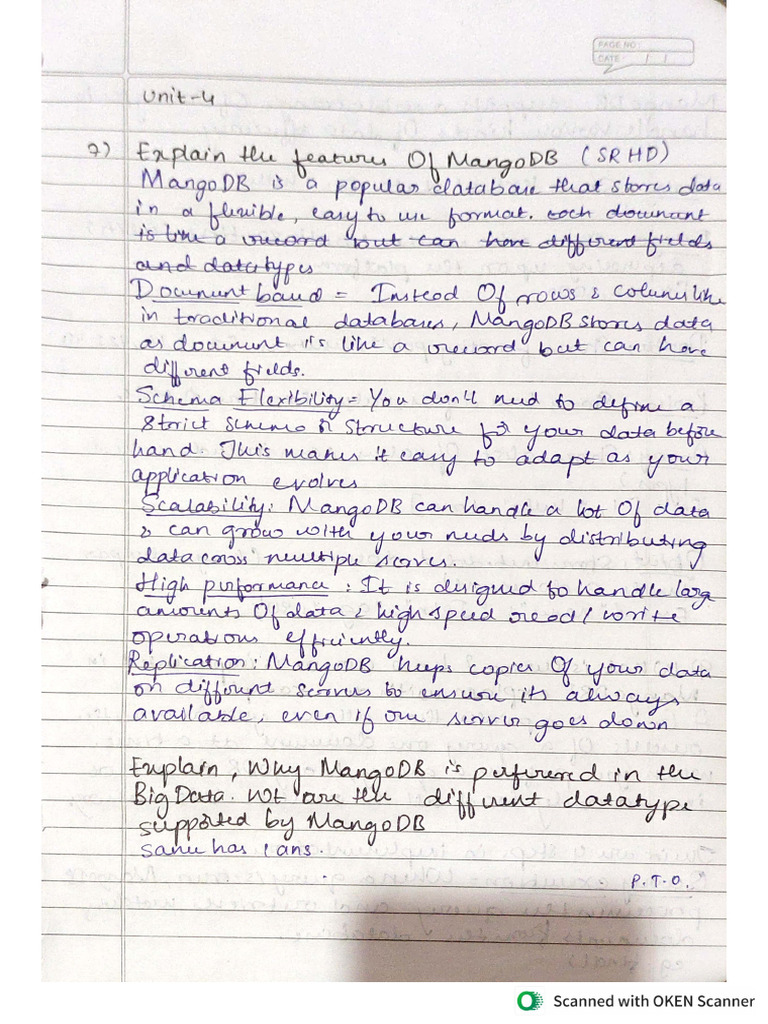 PAGE NO:
DATE: / /
Unit-4
7) Explain the features Of MangoDB (SRHD)
MangoDB is a popular database that stores data
in a flexible, easy to use format. Each document
is like a record but can have different fields
and datatypes
Document based = Instead Of rows & column like
in traditional databases, MangoDB stores data
as document it's like a record but can have
different fields.
Schema Flexibility = You don't need to define a
strict schema or structure for your data before
hand. This makes it easy to adapt as your
application evolves
Scalability: MangoDB can handle a lot Of data
& can grow with your needs by distributing
data cross multiple servers.
High performance : It is designed to handle larg
amounts Of data & high speed read / write
operations efficiently.
Replication: MangoDB keeps copies Of your data
on different servers to ensure its always
available, even if one server goes down
Explain, Why MangoDB is preferred in the
Big Data. Wt are the different datatype
supported by MangoDB
Same has 1 ans.
P.T.O.
Scanned with OKEN Scanner